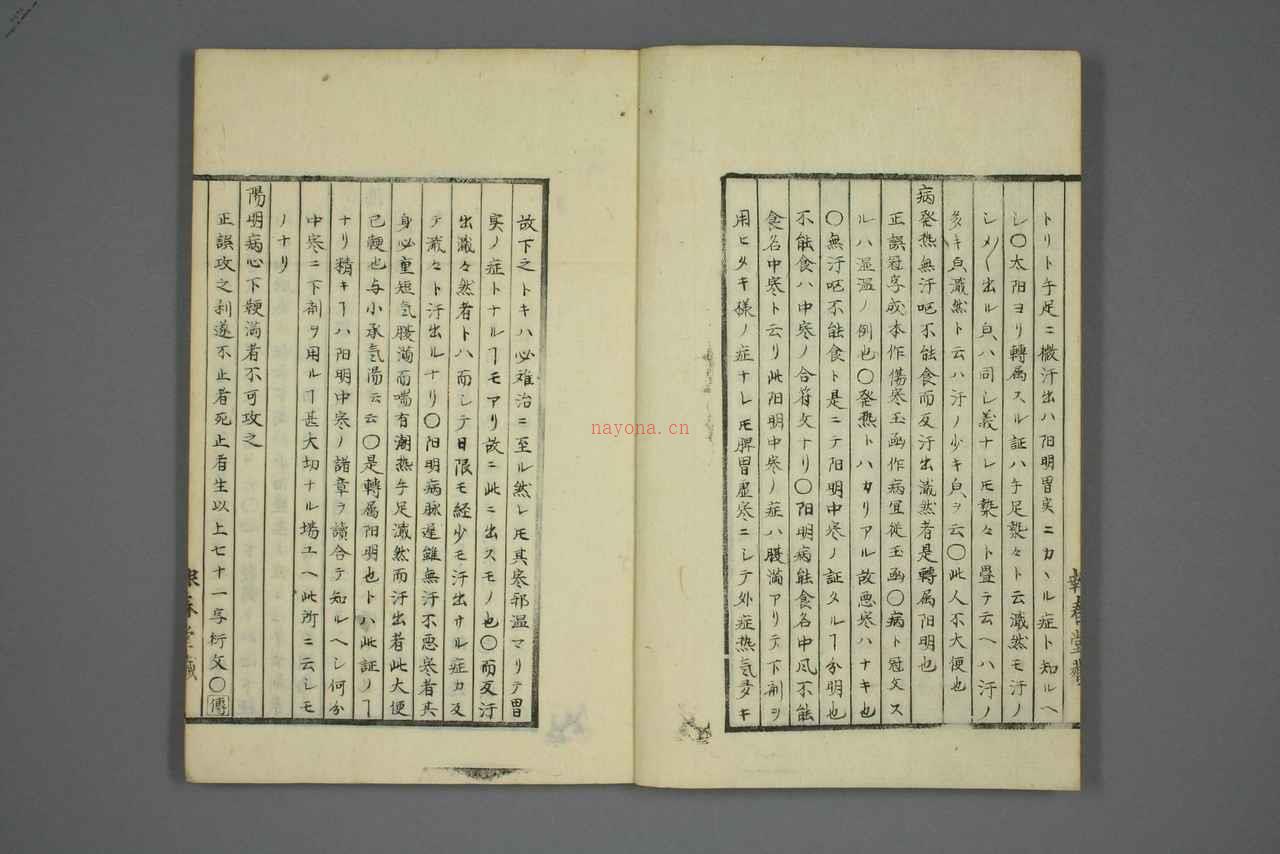 トリト手足ニ微汗出ハ阳明胃実ニカヽル症ト知ルヘ
シ〇太阳ヨリ轉属スル証ハ手足漐々ト云濈然モ汗ノ
出ル貟ハ同シ義ナレ𪜈漐々ト畳テ云ヘハ汗ノ
多キ貟濈然ト云ハ汗ノ少キ貟ヲ云〇此人不大便也
病発热無汗呕不能食而反汗出濈然者是轉属阳明也
正誤冠字成本作傷寒玉函作病宜従玉函〇病ト冠文ス
ルハ湿温ノ例也〇発热トハカリアル故悪寒ハナキ也
〇無汗呕不能食ト是ニテ阳明中寒ノ証タルヿ分明也
不能食ハ中寒ノ合符文ナリ〇阳明病能食名中风不能
食名中寒ト云リ此阳明中寒ノ症ハ腹満アリテ下剤ヲ
用ヒタキ様ノ症ナレ𪜈脾胃虚寒ニシテ外症热気多キ
故下之トキハ必难治ニ至ル然レ𪜈其寒邪温マリテ胃
実ノ症トナルヿモアリ故ニ此ニ出スモノ也〇而反汗
出濈々然者トハ而シテ日限モ経少モ汗出サル症カ反
テ濈々ト汗出ルナリ〇阳明病脉遅雖無汗不悪寒者其
身必重短気腹満而喘有潮热手足濈然而汗出者此大便
已鞕也与小承気湯云云〇是轉属阳明也トハ此証ノヿ
ナリ精キヿハ阳明中寒ノ諸章ヲ讀合テ知ルヘシ何分
中寒ニ下剤ヲ用ルヿ甚大切ナル場エヘ此所ニ云シモ
ノナリ
陽明病心下鞕満者不可攻之
正誤攻之利遂不止者死止者生以上七十一字衍文〇傅